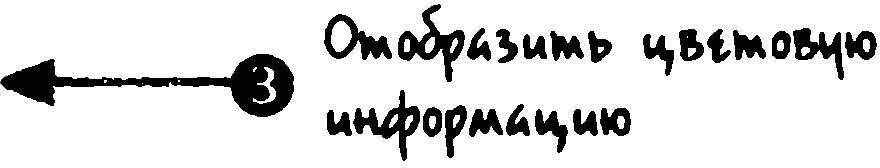 3 Отобразить цветовую
информацию